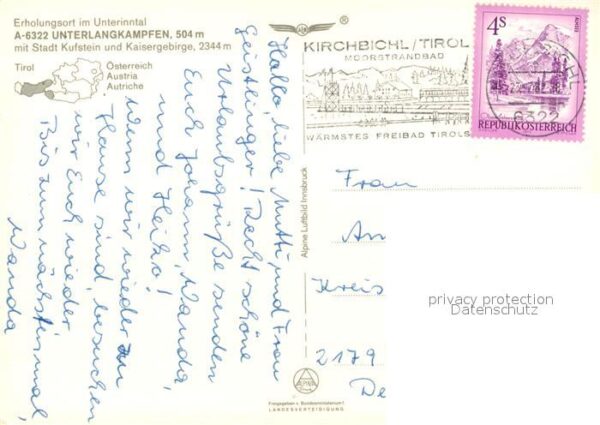 Erholungsort im Unterinntal
A-6322 UNTERLANGKAMPFEN, 504 m
mit Stadt Kufstein und Kaisergebirge, 2344 m
Tirol
Österreich
Austria
Autriche
KIRCHBICHL/TIROL
MOORSTRANDBAD
WÄRMSTES FREIBAD TIROLS
4S
REPUBLIK ÖSTERREICH
6322
Hallo, liebe Mutti und Frau
Geistlinger! Recht schöne
Urlaubsgrüße senden
Euch Johann, Wanda,
und Heiko!
Wenn wir wieder zu
Hause sind, besuchen
wir Euch wieder
Bis zum nächsten mal,
Wanda
Alpine Luftbild Innsbruck
Frau
An
Kreis
2179
De
ALPINE
Freigegeben v. Bundesministerium f.
LANDESVERTEIDIGUNG
privacy protection
Datenschutz